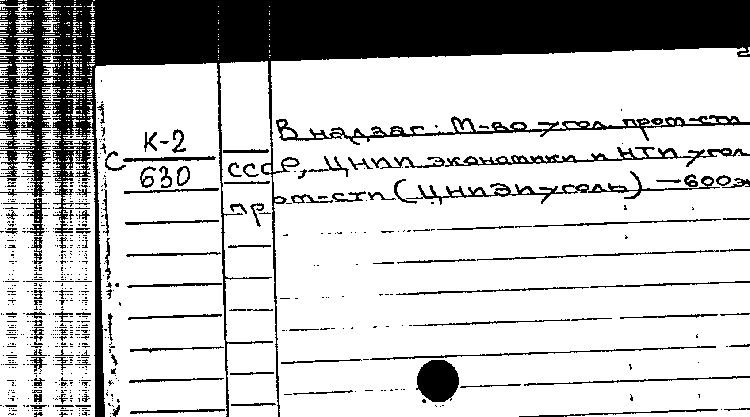 К-2
С 630
В надзаг.: М-во угол. пром-сти
СССР, ЦНИИ экономики и НТИ угол
пром-сти (ЦНИЭИуголь) – 600э